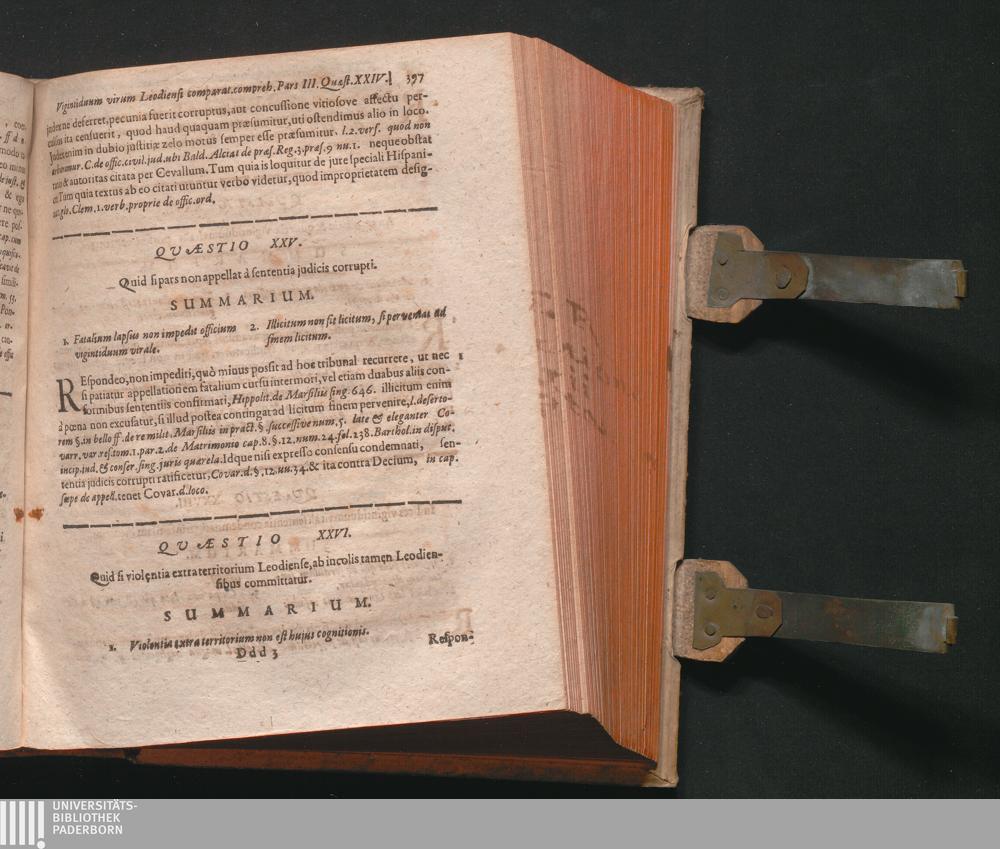 Vigintiduum virum Leodiensi comparat. compreh. Pars III. Quæst. XXIV. 397
judex ne deferret, pecunia fuerit corruptus, aut concussione vitiosove affectu per-
ita censuerit, quod haud quaquam præsumitur, uti ostendimus alio in loco.
Judex enim in dubio justitiæ zelo motus semper esse præsumitur. l. 2. vers. quod non
C. de offic. civil. jud. ubi Bald. Alciat de præs. Reg. 3. præs. 9 nu. 1. neque obstat
& autoritas citata per Cevallum. Tum quia is loquitur de jure speciali Hispani-
Tum quia textus ab eo citati utuntur verbo videtur, quod improprietatem desig-
glo. Clem. 1. verb. proprie de offic. ord.
QUÆSTIO XXV.
Quid si pars non appellat à sententia judicis corrupti.
SUMMARIUM.
1. Fatalium lapsus non impedit officium
vigintiduum virale.
2. Illicitum non fit licitum, si perveniat ad
finem licitum.
REspondeo, non impediri, quò minus possit ad hoc tribunal recurrere, ut nec 1
si patiatur appellationem fatalium cursu intermori, vel etiam duabus aliis con-
formibus sententiis confirmari, Hippolit. de Marsiliis sing. 646. illicitum enim
à pœna non excusatur, si illud postea contingat ad licitum finem pervenire, l. deserto-
rem §. in bello ff. de re milit. Marsiliis in pract. §. successive num. 5. late & eleganter Co-
varr. var. res. tom. 1. par. 2. de Matrimonio cap. 8. §. 12. num. 24. fol. 238. Barthol. in disput.
incip. jud. & conser. sing. juris quarela. Idque nisi expresso consensu condemnati, sen-
tentia judicis corrupti ratificetur, Covar. d. §. 12. uu. 34. & ita contra Decium, in cap.
sæpe de appell. tenet Covar. d. loco.
QUÆSTIO XXVI.
Quid si violentia extra territorium Leodiense, ab incolis tamen Leodien-
sibus committatur.
SUMMARIUM.
1. Violentia extra territorium non est hujus cognitionis.
Ddd 3 Respon-
UNIVERSITÄTS-
BIBLIOTHEK
PADERBORN